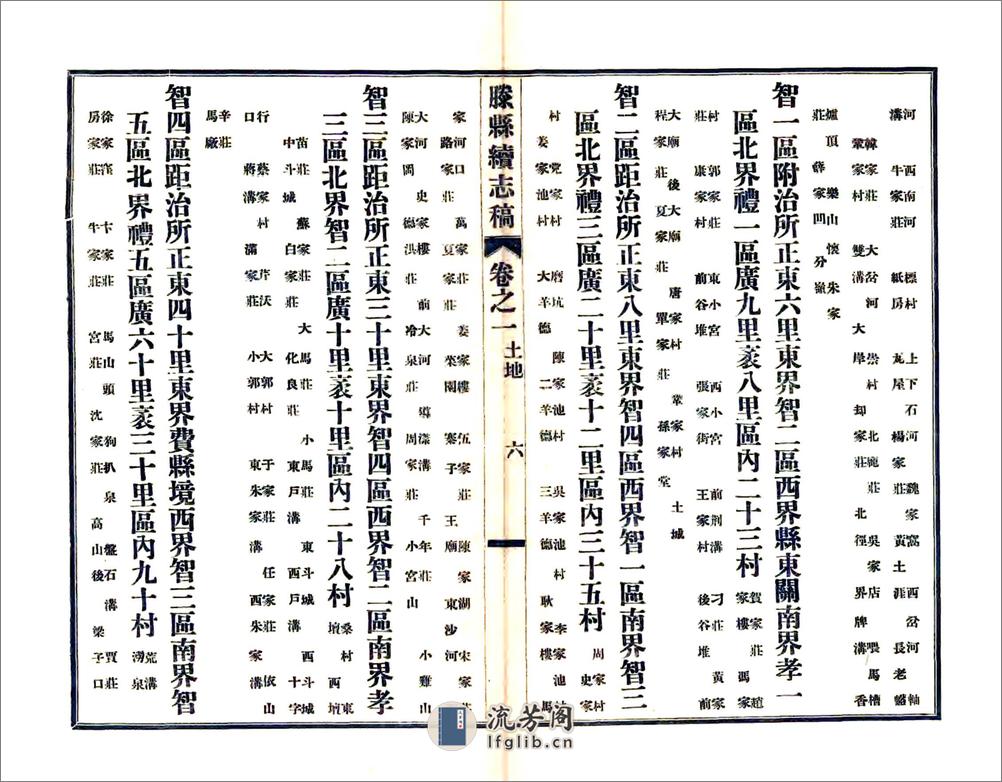 河 西南河 標村 上下石河 魏家窩 西岔河 軸
溝 牛家莊 紙房 瓦屋 楊家莊 黃土涯 長老
韓家莊 大岔河 崇村 北莊 吳家店 喂馬槽
鞏家村 雙溝 大岸 却家莊 北徑 界牌溝 香
爐頂 樂山 懷 朱家
莊 薛家凹 分嶺
智一區附治所正東六里東界智二區西界縣東關南界孝一
區北界禮一區廣九里袤八里區內二十三村
賀家莊 趙
家樓 馮家
村 郭家村 東小宮 西小宮 前荆溝 刁莊 黃家
莊 康家村 前谷堆 張家街 王家村 後谷堆 前
大廟 後大廟 唐家村 鞏家村 土城
程家莊 夏家莊 單家莊 孫家堂
智二區距治所正東八里東界智四區西界智一區南界智三
區北界禮三區廣二十里袤十二里區內三十五村
周家村
史家
村 党家村 磨坑 陳家池村 吳家池村 李家池
姜家池村 大羊德 二羊德 三羊德 耿家樓 馬
家河口 萬家莊 姜家樓 伍家莊 陳家湖 宋家莊
路家莊 夏家莊 菜園 寨子 王廟 東沙河
大河 史家樓 前大河 導漾溝 千年莊 小雞山
陳家園 德洪莊 冷泉莊 周家莊 小宮山
智三區距治所正東三十里東界智四區西界智二區南界孝
三區北界智二區廣十里袤十里區內二十八村
桑村 東
墳 西墳
苗莊 蘇家莊 大馬莊 小馬莊 東斗城 西斗城
中斗城 白家莊 化良莊 東戸溝 西戸溝 十字
行 蔡家村 芹沃 大郭村 于家莊 任家莊 依山
口 蔣溝 滿家莊 小郭村 東朱家溝 西朱家溝
辛莊
馬廠
智四區距治所正東四十里東界費縣境西界智三區南界智
五區北界禮五區廣六十里袤三十里區內九十村
荒溝
澇泉
徐家窪 卞家莊 馬山頭 狗扒泉 盤石溝 賈莊
房家莊 牛家莊 宮莊 沈家莊 高山後 梁子口
滕縣續志稿 卷之一 土地 六
流芳阁
lfglib.cn